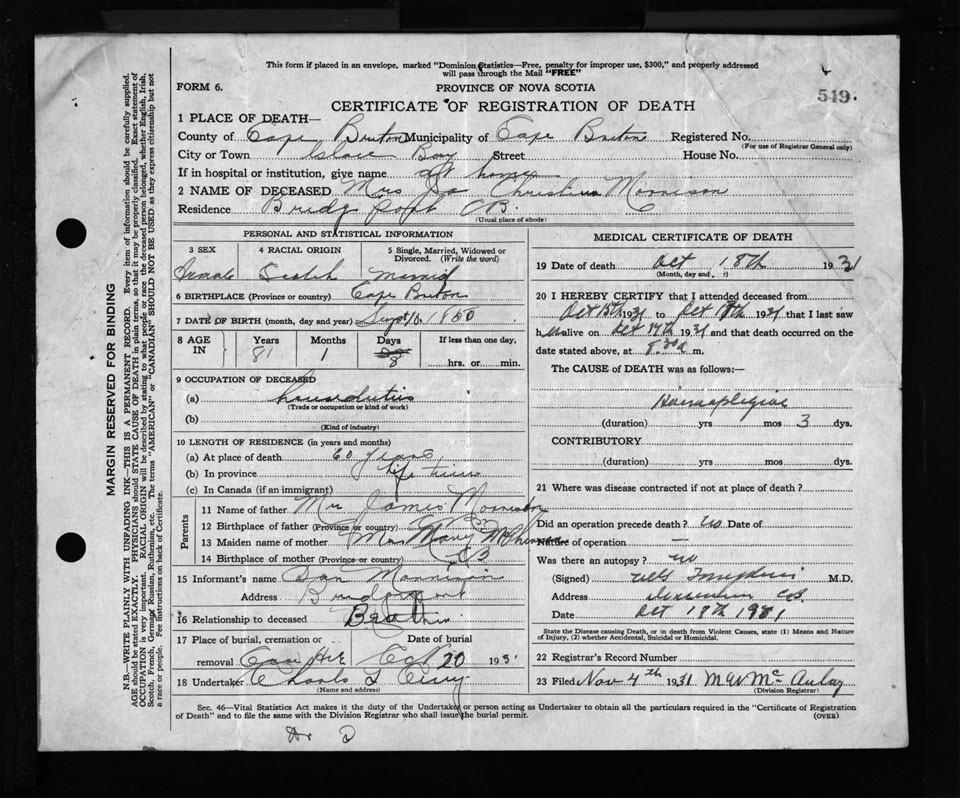 This form if placed in an envelope, marked "Dominion Statistics—Free, penalty for improper use, $300," and properly addressed
will pass through the Mail "FREE"
FORM 6.
PROVINCE OF NOVA SCOTIA
549
CERTIFICATE OF REGISTRATION OF DEATH
1 PLACE OF DEATH—
County of Cape Breton Municipality of Cape Breton Registered No.
(For use of Registrar General only)
City or Town Glace Bay Street House No.
If in hospital or institution, give name at home
2 NAME OF DECEASED Mrs Christina Morrison
Residence Bridgport CB.
(Usual place of abode)
PERSONAL AND STATISTICAL INFORMATION
3 SEX 4 RACIAL ORIGIN 5 Single, Married, Widowed or
Divorced. (Write the word)
Female Scotch Married
6 BIRTHPLACE (Province or country) Cape Breton
7 DATE OF BIRTH (month, day and year) Sept 10 1850
8 AGE IN Years Months Days If less than one day,
81 1 8 hrs. or min.
9 OCCUPATION OF DECEASED
(a) houseduties
(Trade or occupation or kind of work)
(b)
(Kind of industry)
10 LENGTH OF RESIDENCE (in years and months)
(a) At place of death 60 years
(b) In province life time
(c) In Canada (if an immigrant)
Parents
11 Name of father Mr James Morrison
12 Birthplace of father (Province or country)
13 Maiden name of mother Mrs Mary McPherson
14 Birthplace of mother (Province or country) CB
15 Informant's name Dan Morrison
Address Bridgeport
16 Relationship to deceased Brother
17 Place of burial, cremation or Date of burial
removal Oct 20 1931
18 Undertaker Charles
(Name and address)
MEDICAL CERTIFICATE OF DEATH
19 Date of death Oct 18th 1931
(Month, day and year)
20 I HEREBY CERTIFY that I attended deceased from
Oct 15th 1931 to Oct 18th 1931 that I last saw
her alive on Oct 17th 1931 and that death occurred on the
date stated above, at 8.30 a m.
The CAUSE of DEATH was as follows:—
Hemiplegia
(duration) yrs mos 3 dys.
CONTRIBUTORY
(duration) yrs mos dys.
21 Where was disease contracted if not at place of death?
Did an operation precede death? no Date of
Nature of operation —
Was there an autopsy? no
(Signed) M.D.
Address Dominion CB
Date Oct 18th 1931
State the Disease causing Death, or in death from Violent Causes, state (1) Means and Nature
of Injury, (2) whether Accidental, Suicidal or Homicidal.
22 Registrar's Record Number
23 Filed Nov 4th 1931 M W McAulay
(Division Registrar)
Sec. 46—Vital Statistics Act makes it the duty of the Undertaker or person acting as Undertaker to obtain all the particulars required in the "Certificate of Registration
of Death" and to file the same with the Division Registrar who shall issue the burial permit.
(OVER)
MARGIN RESERVED FOR BINDING
N.B.—WRITE PLAINLY WITH UNFADING INK—THIS IS A PERMANENT RECORD. Every item of information should be carefully supplied.
AGE should be stated EXACTLY. PHYSICIANS should STATE CAUSE OF DEATH in plain terms, so that it may be properly classified. Exact statement of
OCCUPATION is very important. RACIAL ORIGIN will be described by stating to what people or race the deceased person belonged, whether English, Irish,
Scotch, French, German, Russian, Ruthenian, etc. The terms "AMERICAN" or "CANADIAN" SHOULD NOT BE USED as they express citizenship but not
a race or people. See instructions on back of Certificate.